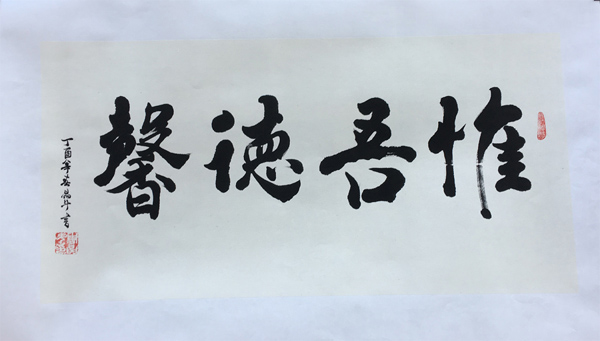 惟吾德馨
丁酉年
书